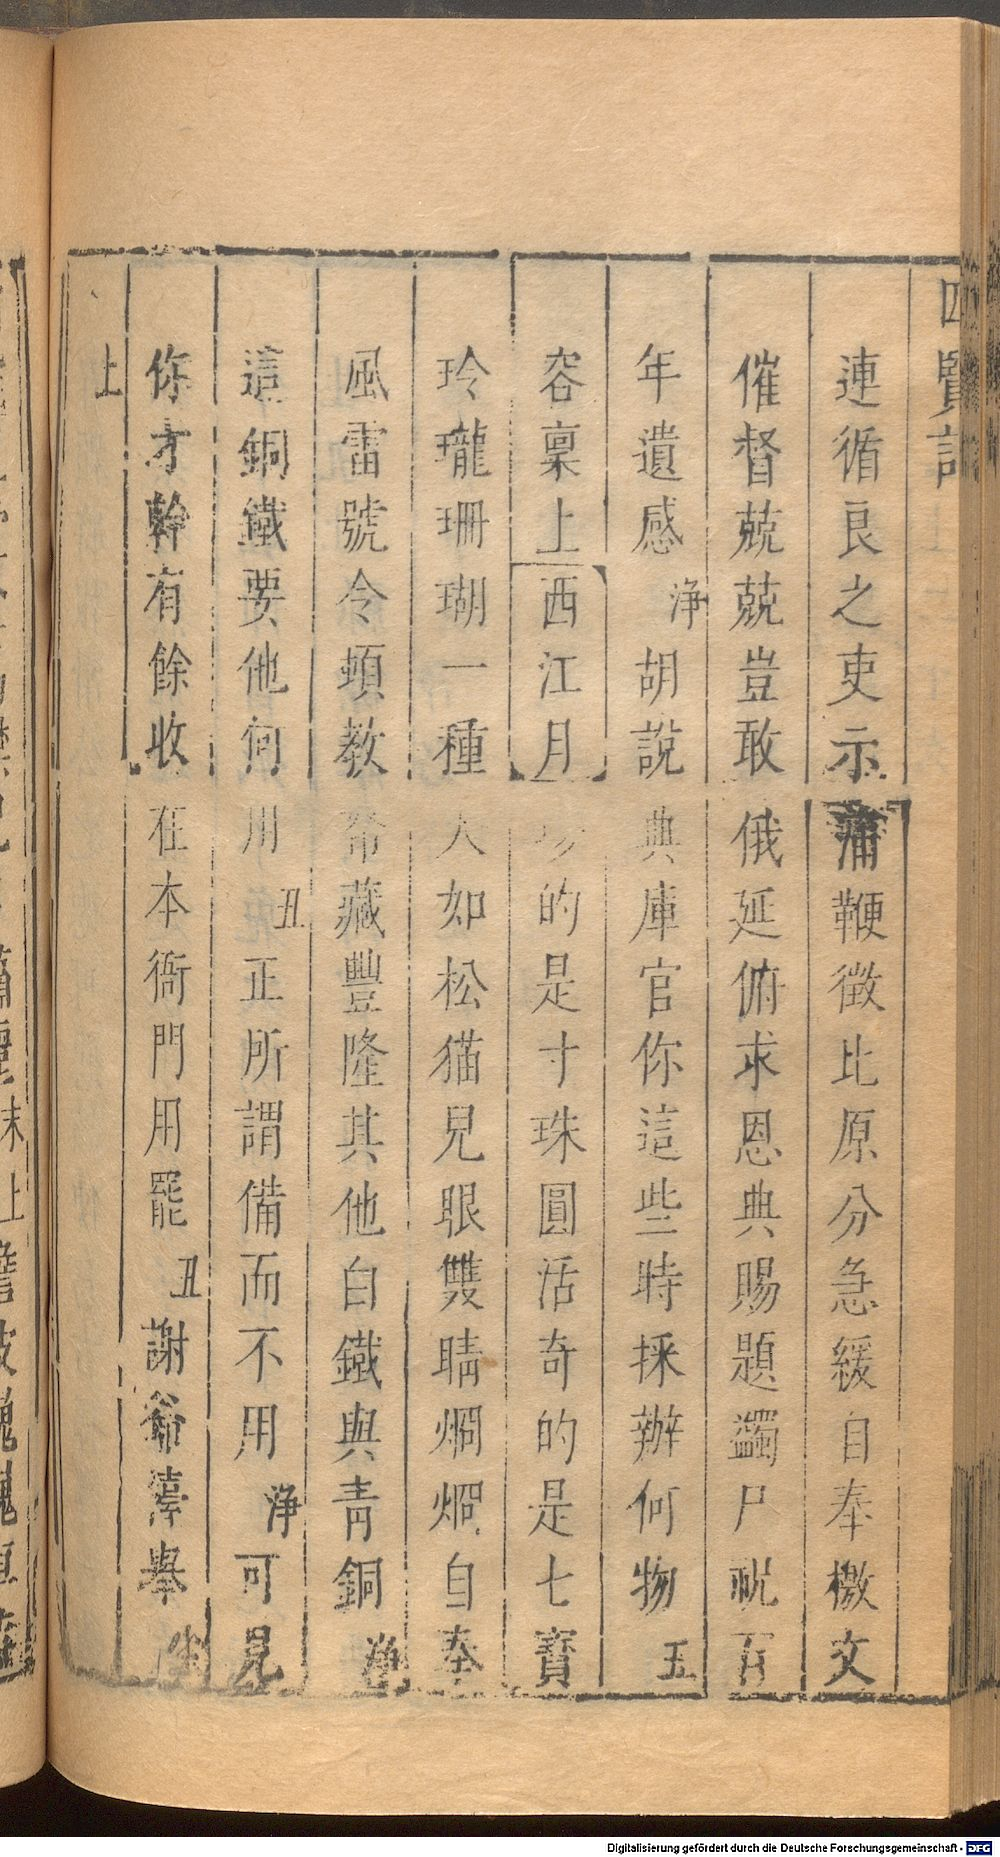 四賢記
連循良之吏示蒲鞭徵比原分急緩自奉檄文
催督兢兢豈敢俄延俯求恩典賜題蠲尸祝百
年遺感 淨 胡說典庫官你這些時採辦何物 丑
容稟上 西江月 的是寸珠圓活奇的是七寶
玲瓏珊瑚一種人如松猫兒眼雙睛烱烱自奉
風雷號令頓教帑藏豐隆其他白鐵與青銅 淨
這銅鐵要他何用 丑 正所謂備而不用 淨 可見
你才幹有餘收在本衙門用罷 丑 謝爺擡舉
上
Digitalisierung gefördert durch die Deutsche Forschungsgemeinschaft - DFG